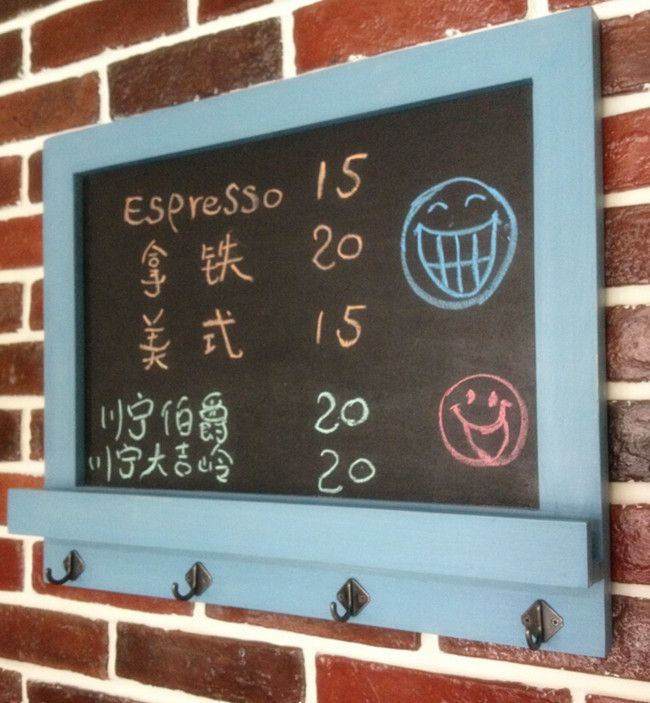 Espresso 15
拿铁 20
美式 15
川宁伯爵 20
川宁大吉岭 20